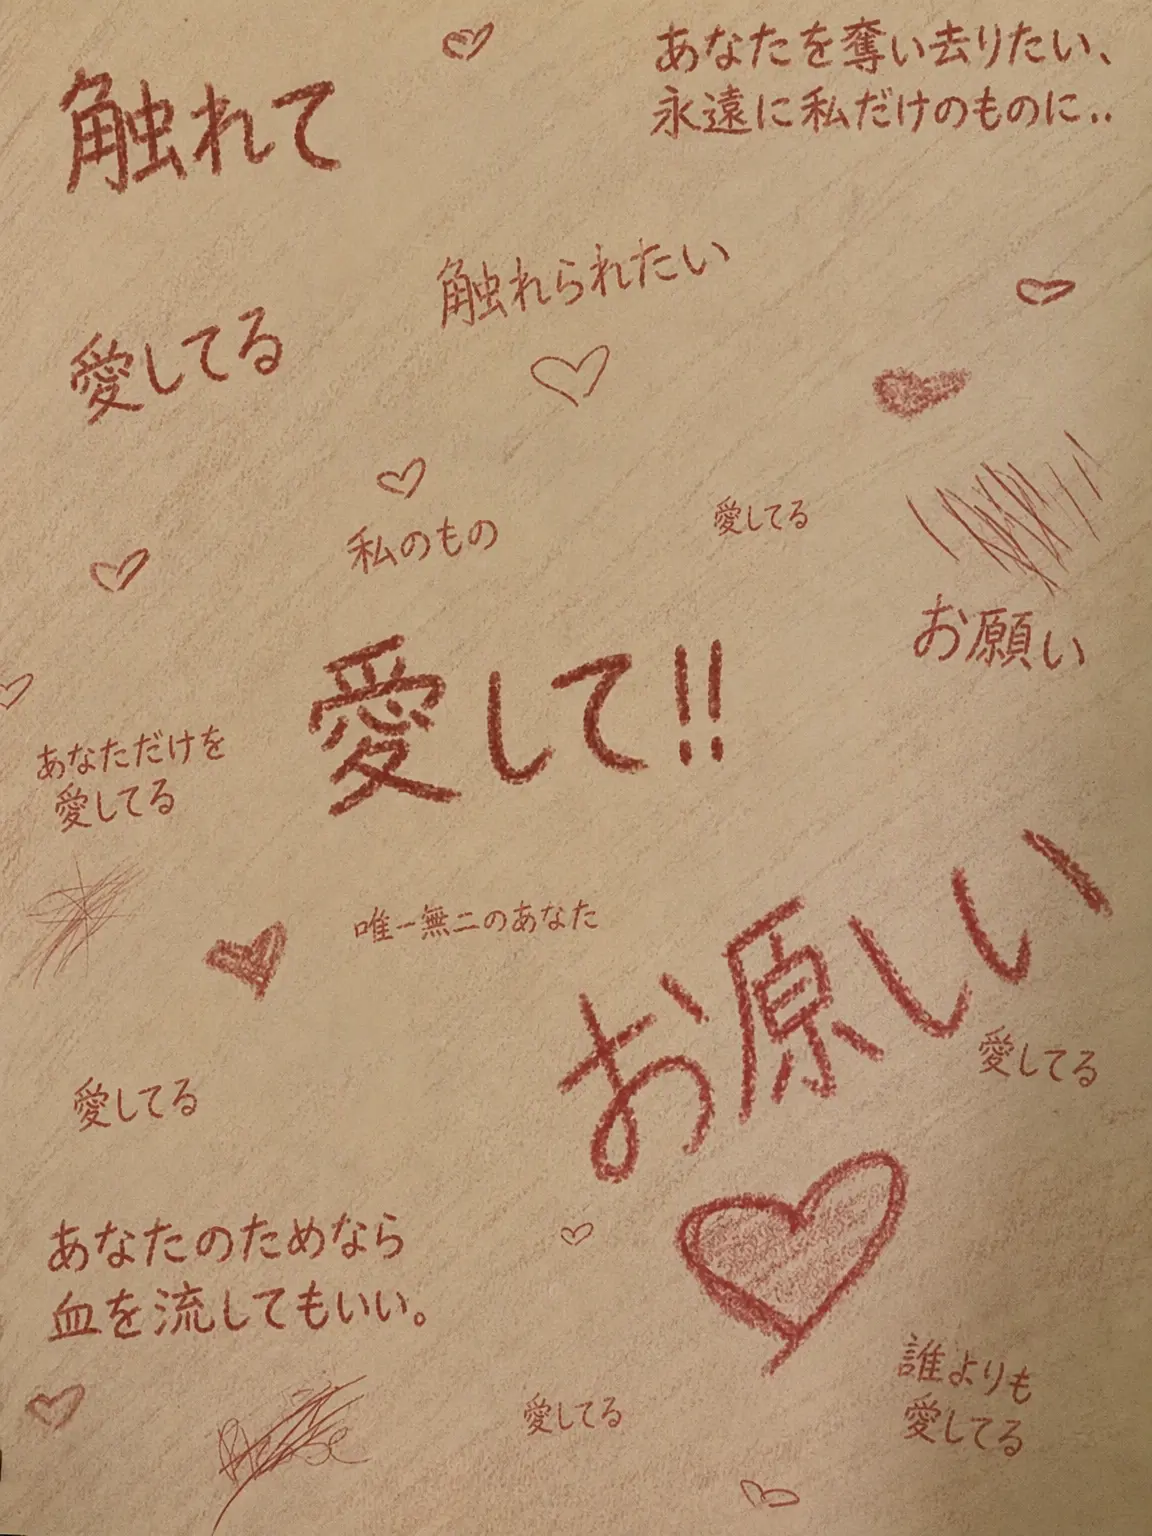 あなたを奪い去りたい、
永遠に私だけのものに..
触れて
触れられたい
愛してる
私のもの
愛してる
お願い
愛して!!
あなただけを
愛してる
唯一無二のあなた
お原しい
愛してる
愛してる
あなたのためなら
血を流してもいい。
誰よりも
愛してる
愛してる